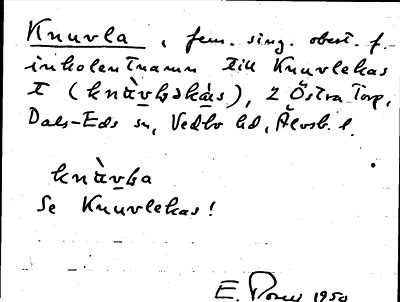 Knuvla, fem. sing. obest. f.
inkolentnamn till Knuvlekas
t (knàvləkás), i Östra Torp,
Dals-Eds sn, Vedbo hd, Älvsb. l.
knàvla
Se Knuvlekas!
E. 1950